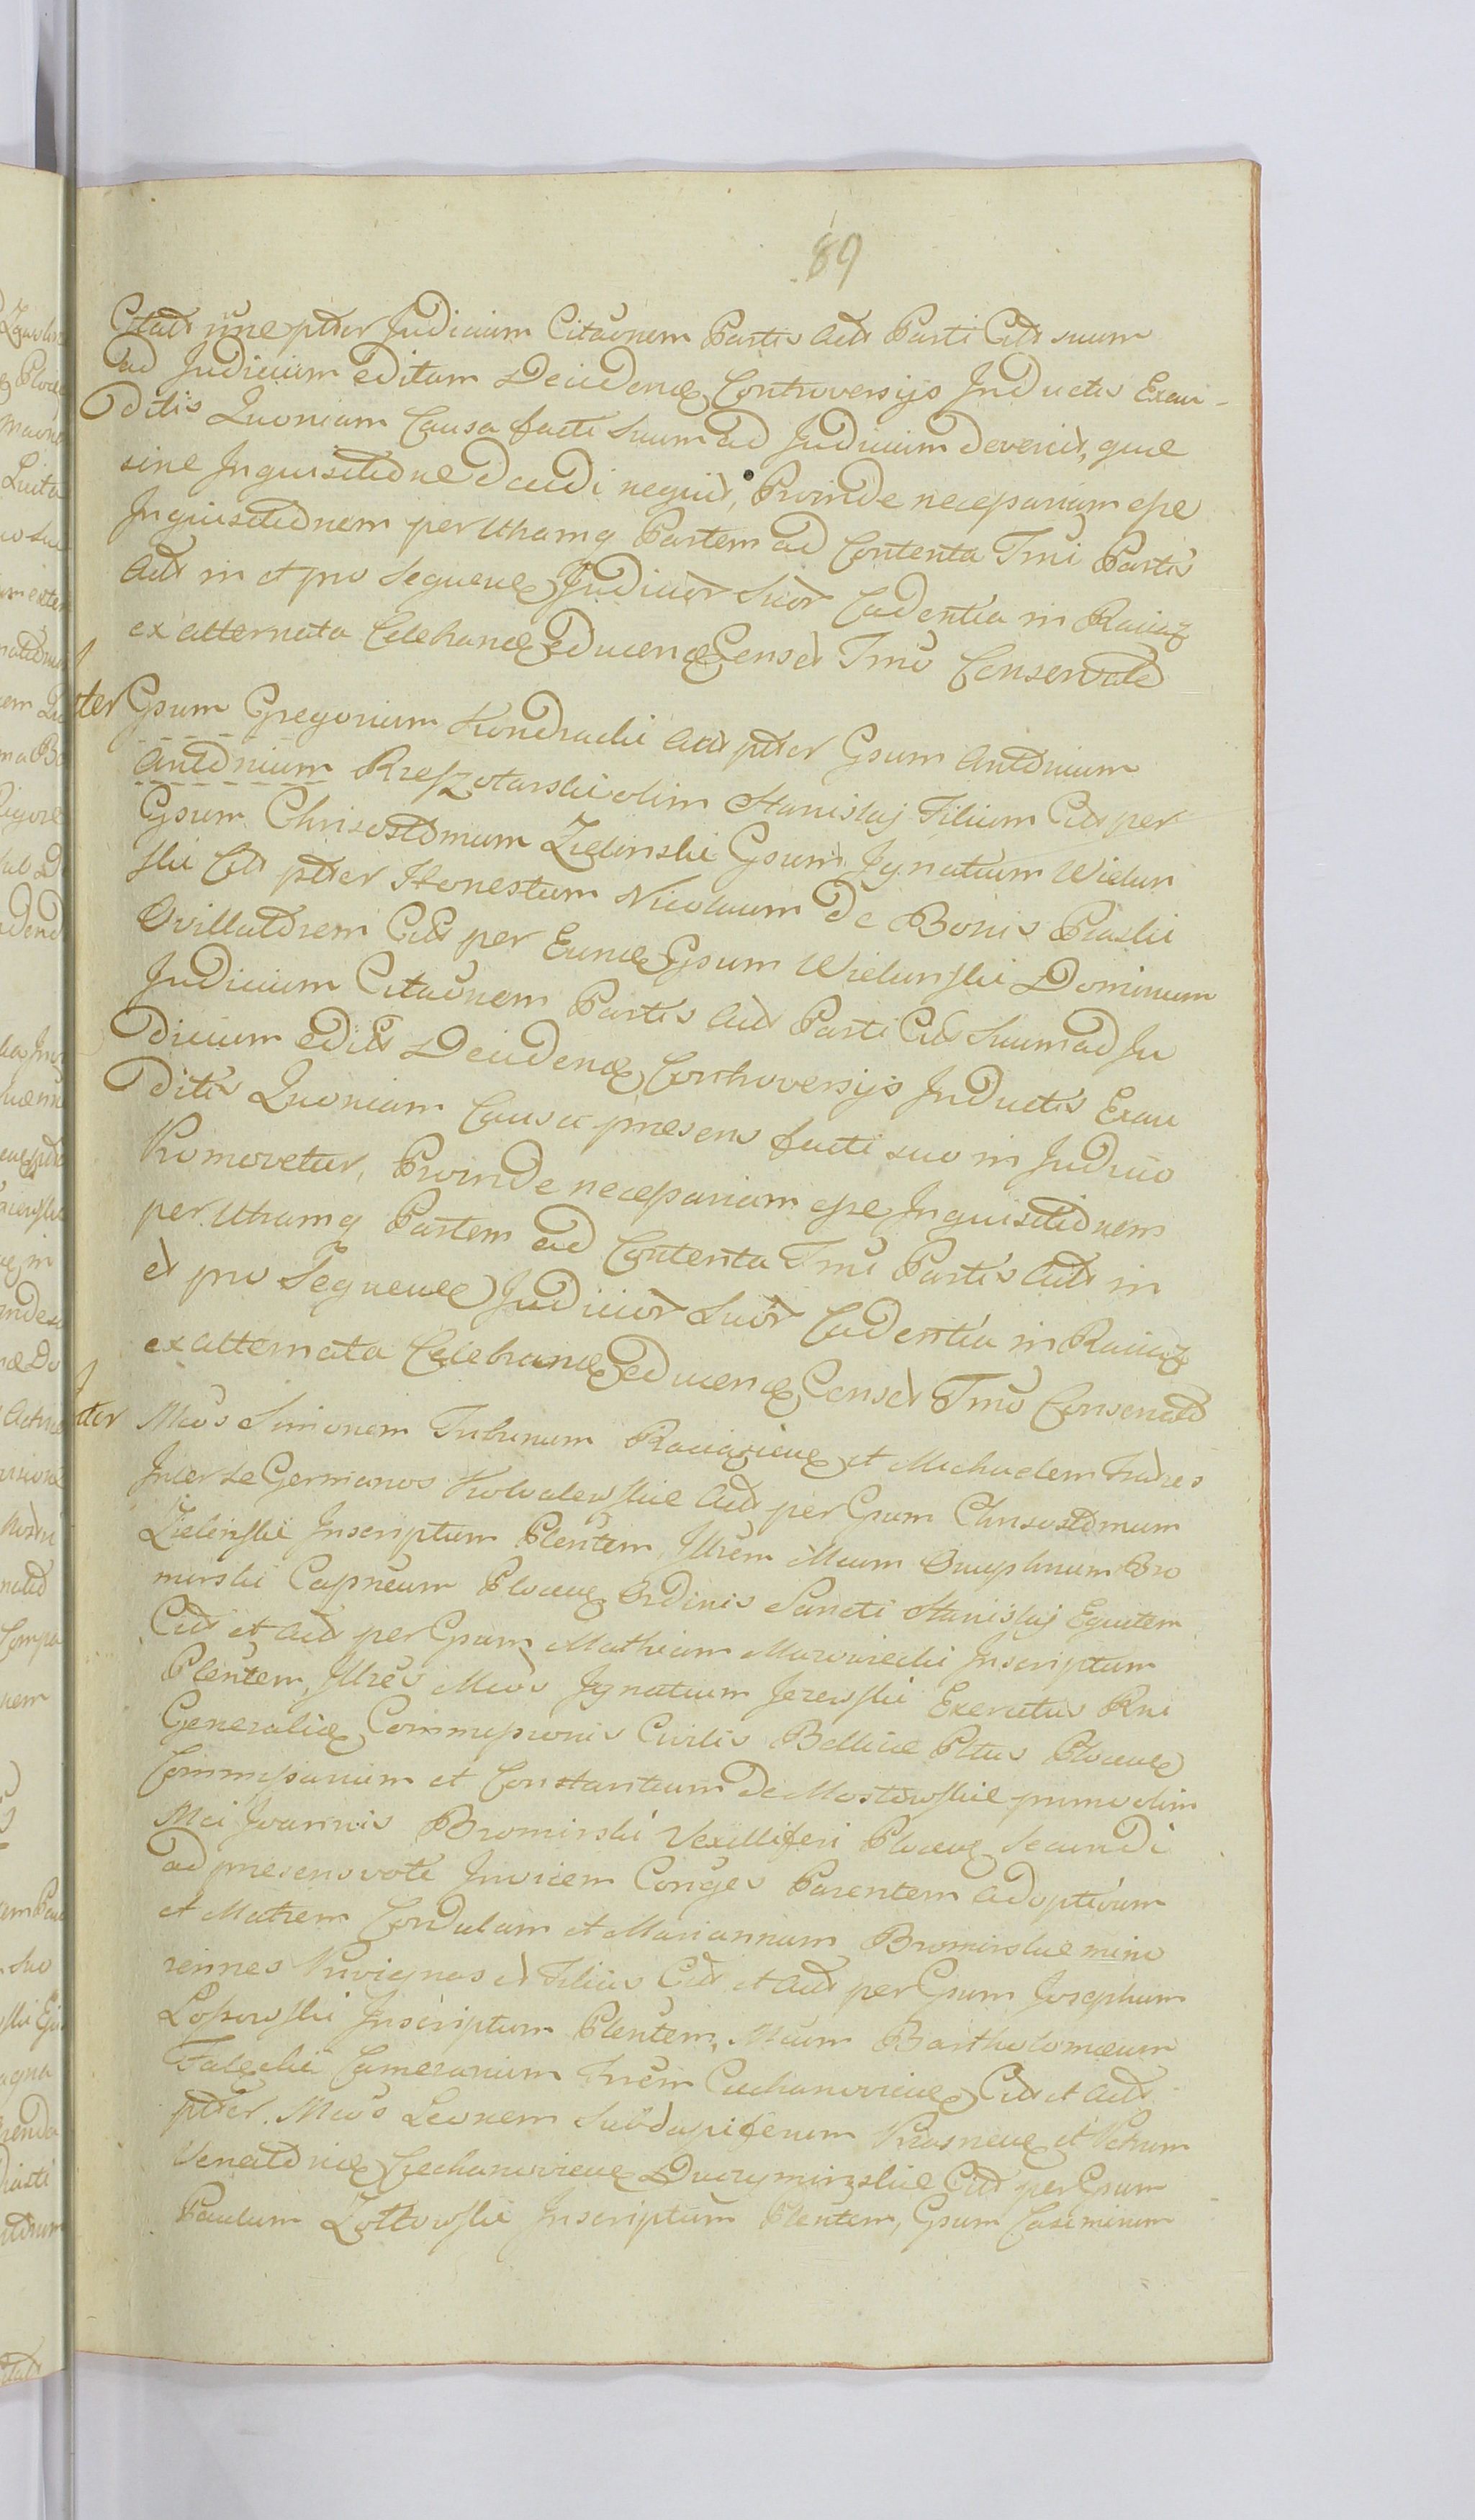 89
Citatt sine ptter Judicium Citaōnem Partis Actt Parti Citt suum
ad Judicium editam Decidend Controversijs Inductis Exau-
ditis Quoniam Causa facti Suum ad Judicium devenit, quae
sine Inquisitione decidi nequit, Proinde necessariam esse
Inquisitionem per Utramq Partem ad Contenta Trni Partis
Actt in et pro Sequen Judicior Suor Cadentia in Raciąż
ex alternata Celebrand educend Censet Trno Conservato
Inter Gsum Gregorium Kondracki Actt ptter Gsum Antonium
Antonium Rzeszotarski olim Stanislaj Filium Citt per
Gsum Chrisostomum Zielinski Gsum Ignatium Wielun
ski Citt ptter Honestum Nicolaum de Bonis Piaski
Ovillatorem Citt per Eund Gsum Wielunski Dominum
Judicium Citaōnem Partis Actt Parti Citt Suum ad Ju
dicium editt Decidend Controversijs Inductis Exau
ditis Quoniam Causa praesens facti suo in Judicio
Promovetur, Proinde necessariam esse Inquisitionem
per Utramq Partem ad Contenta Trni Partis Actt in
et pro Sequen Judicior Suor Cadentia in Raciąż
ex alternata Celebrand educend Censet Trno Conservato
Inter Mcos Simonem Tribunum Raciąźien et Michaelem Fratres
Inter se Germanos Kowalewskie Actt per Gsum Chrisostomum
Zielinski Inscriptum Plentem, Illrem Mcum Onuphrium Bro
mirski Capneum Plocen Ordinis Sancti Stanislaj Equitem
Citt et Actt per Gsum Mathiam Marwiecki Inscriptum
Plentem, Illres Mcos Ignatium Jezewski Exercitus Rni
Generalis Commissionis Civilis Bellicae Pttus Plocen
Commissarium et Constantiam de Mostowskie primo olim
Mci Joannis Bromirski Vexilliferi Plocen Secundi
ad praesens voti Invicem Conges Parentem adoptivum
et Matrem Cordulam et Mariannam Bromirskie mino
rennes Privignas et Filias Citt et Actt per Gsum Josephum
Lossowski Inscriptum Plentem, Mcum Bartholomaeum
Falęcki Camerarium Trrem Ciechanovien Citt et Actt
ptter Mcos Leonem Subdapiferum Krasnen et Petrum
Venatorid Ciechanovien Duczyminskie Citt per Gsum
Paulum Zottowski Inscriptum Plentem, Gsum Casimirum